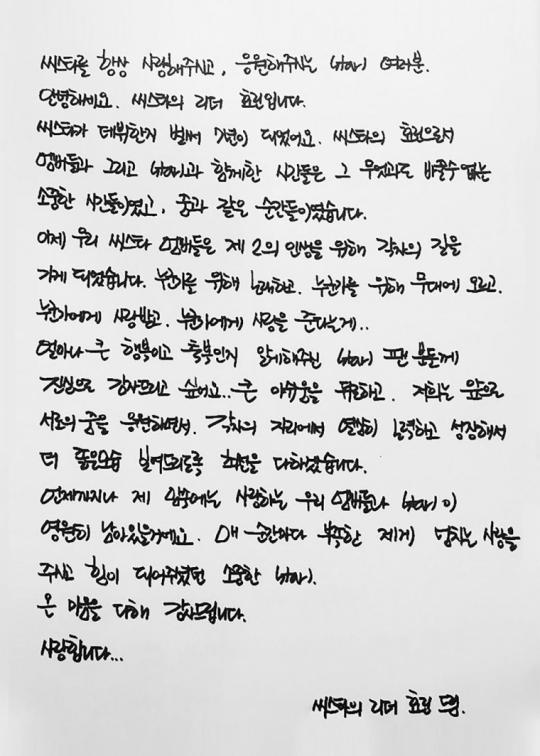 씨스타를 항상 사랑해주시고, 응원해주시는 (star)1 여러분.
안녕하세요. 씨스타의 리더 효린입니다.
씨스타가 데뷔한지 벌써 7년이 되었어요. 씨스타의 효린으로서
멤버들과 그리고 (star)1과 함께한 시간들은 그 무엇과도 바꿀수 없는
소중한 시간들이였고, 꿈과 같은 순간들이였습니다.
이제 우리 씨스타 멤버들은 제 2의 인생을 위해 각자의 길을
가게 되었습니다. 누군가를 위해 노래하고, 누군가를 위해 무대에 오르고.
누군가에게 사랑받고. 누군가에게 사랑을 준다는게..
얼마나 큰 행복이고 축복인지 알게해주신 팬 분들께
진심으로 감사드리고 싶어요.. 큰 아쉬움을 뒤로하고. 저희는 앞으로
서로의 꿈을 응원하면서. 각자의 자리에서 열심히 노력하고 성장해서
더 좋은모습 보여드리도록 최선을 다하겠습니다.
언제까지나 제 마음에는 사랑하는 우리 멤버들과 이
영원히 남아있을거에요. 매 순간마다 부족한 제게 넘치는 사랑을
주시고 힘이 되어주셨던 소중한
온 마음을 다해 감사드립니다.
사랑합니다...
씨스타의 리더 효린 드림.